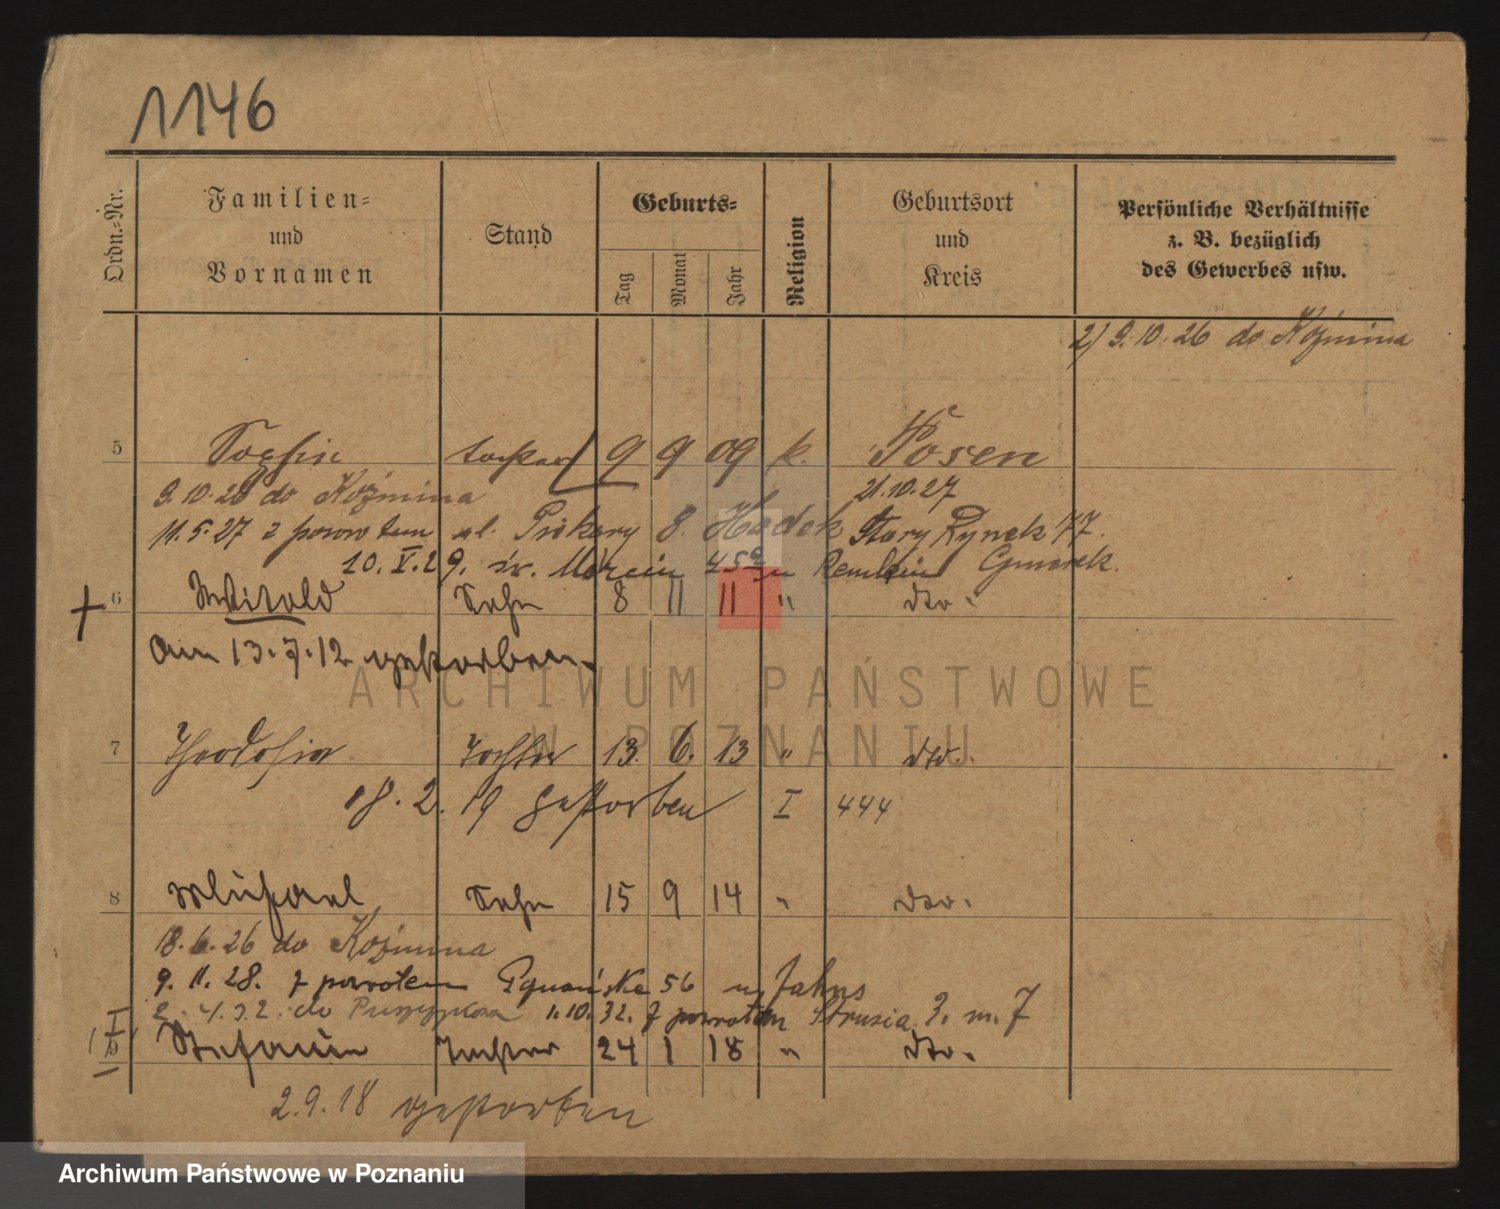 1146
Ordn.=Nr.
Familien=
und
Vornamen
Stand
Geburts=
Tag
Monat
Jahr
Religion
Geburtsort
und
Kreis
Persönliche Verhältnisse
z. B. bezüglich
des Gewerbes usw.
2) 9.10.26 do Koźmina
5 Sophie Tochter 9 9 09 k. Posen
9.10.26 do Koźmina 21.10.27
11.5.27 z powrotem ul. Piekary 8. Stary Rynek 77.
10.V.29. św. Marcin 45a u
6 Witold Sohn 8 11 11 " dto.
Am 13.7.12 gestorben.
7 Theodosia Tochter 13. 6. 13 " dto.
18.2.19 gestorben I 444
8 Michael Sohn 15 9 14 " dto.
18.6.26 do Koźmina
9.11.28. z powrotem 56 u Jahns
2.4.32. do 1.10.32. z powrotem Strusia 3. m. 7
9 Stefanie Tochter 24 1 18 " dto.
2.9.18 gestorben
ARCHIWUM PAŃSTWOWE
W POZNANIU
Archiwum Państwowe w Poznaniu